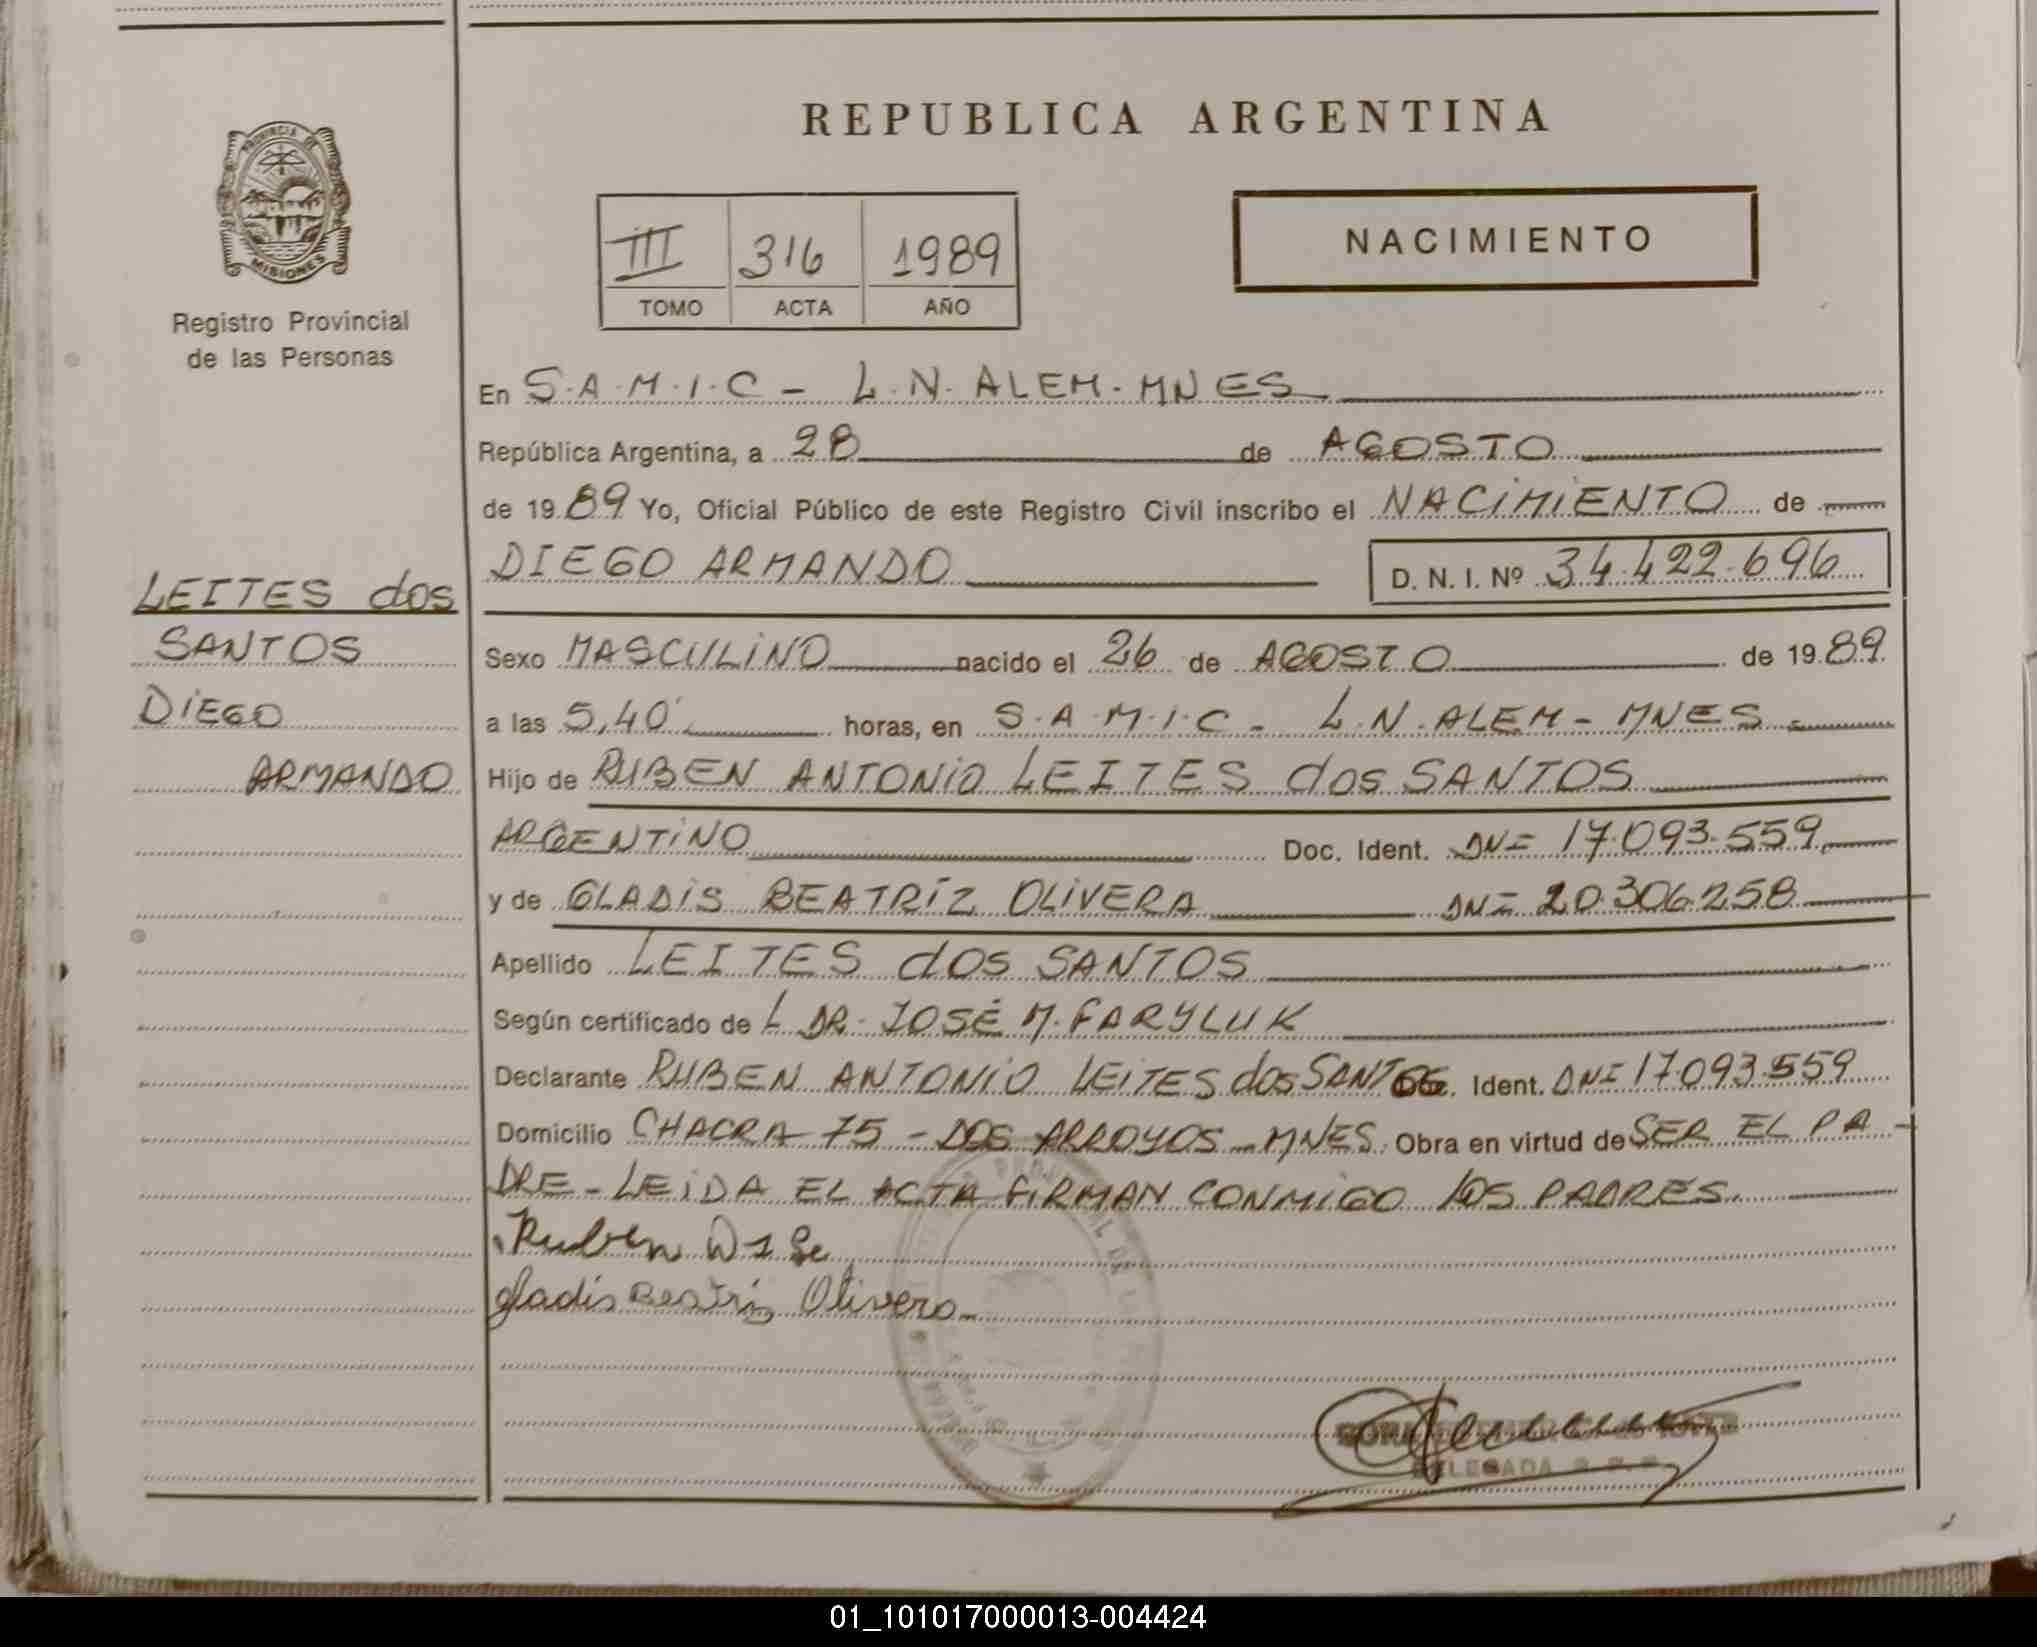 REPUBLICA ARGENTINA
PROVINCIA DE
MISIONES
Registro Provincial
de las Personas
III 316 1989
TOMO ACTA AÑO
NACIMIENTO
En S.A.M.I.C - L.N. ALEM - MNES
República Argentina, a 28 de AGOSTO
de 1989 Yo, Oficial Público de este Registro Civil inscribo el NACIMIENTO de
DIEGO ARMANDO D. N. I. Nº 34.422.696
LEITES dos
SANTOS
DIEGO
ARMANDO
Sexo MASCULINO nacido el 26 de AGOSTO de 1989
a las 5,40 horas, en S.A.M.I.C - L.N. ALEM - MNES
Hijo de RUBEN ANTONIO LEITES dos SANTOS
ARGENTINO Doc. Ident. DNI 17.093.559
y de GLADIS BEATRIZ OLIVERA DNI 20.306.258
Apellido LEITES dos SANTOS
Según certificado de L DR. JOSÉ M. FARYLUK
Declarante RUBEN ANTONIO LEITES dos SANTOS Ident. DNI 17.093.559
Domicilio CHACRA 75 - DOS ARROYOS - MNES. Obra en virtud de SER EL PA-
DRE - LEIDA EL ACTA FIRMAN CONMIGO LOS PADRES.
Ruben
Gladis Beatriz Olivera
DELEGADA
01_101017000013-004424